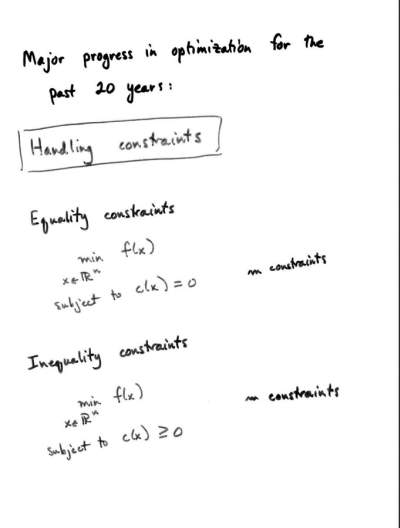 Major progress in optimization for the
past 20 years:
Handling constraints
Equality constraints
min f(x)
x∈ℝⁿ
subject to c(x) = 0
m constraints
Inequality constraints
min f(x)
x∈ℝⁿ
subject to c(x) ≥ 0
m constraints